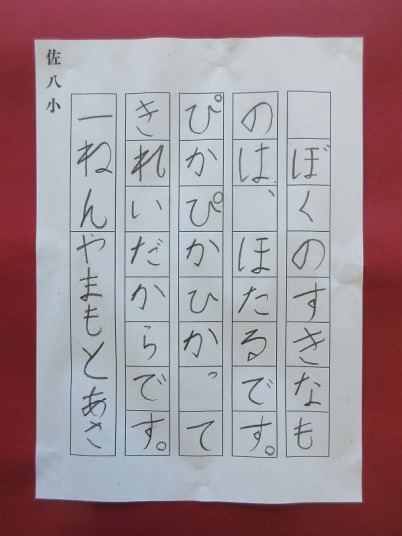 ぼくのすきなも
のは、ほたるです。
ぴかぴかひかって
きれいだからです。
一ねんやまもとあさ
佐八小